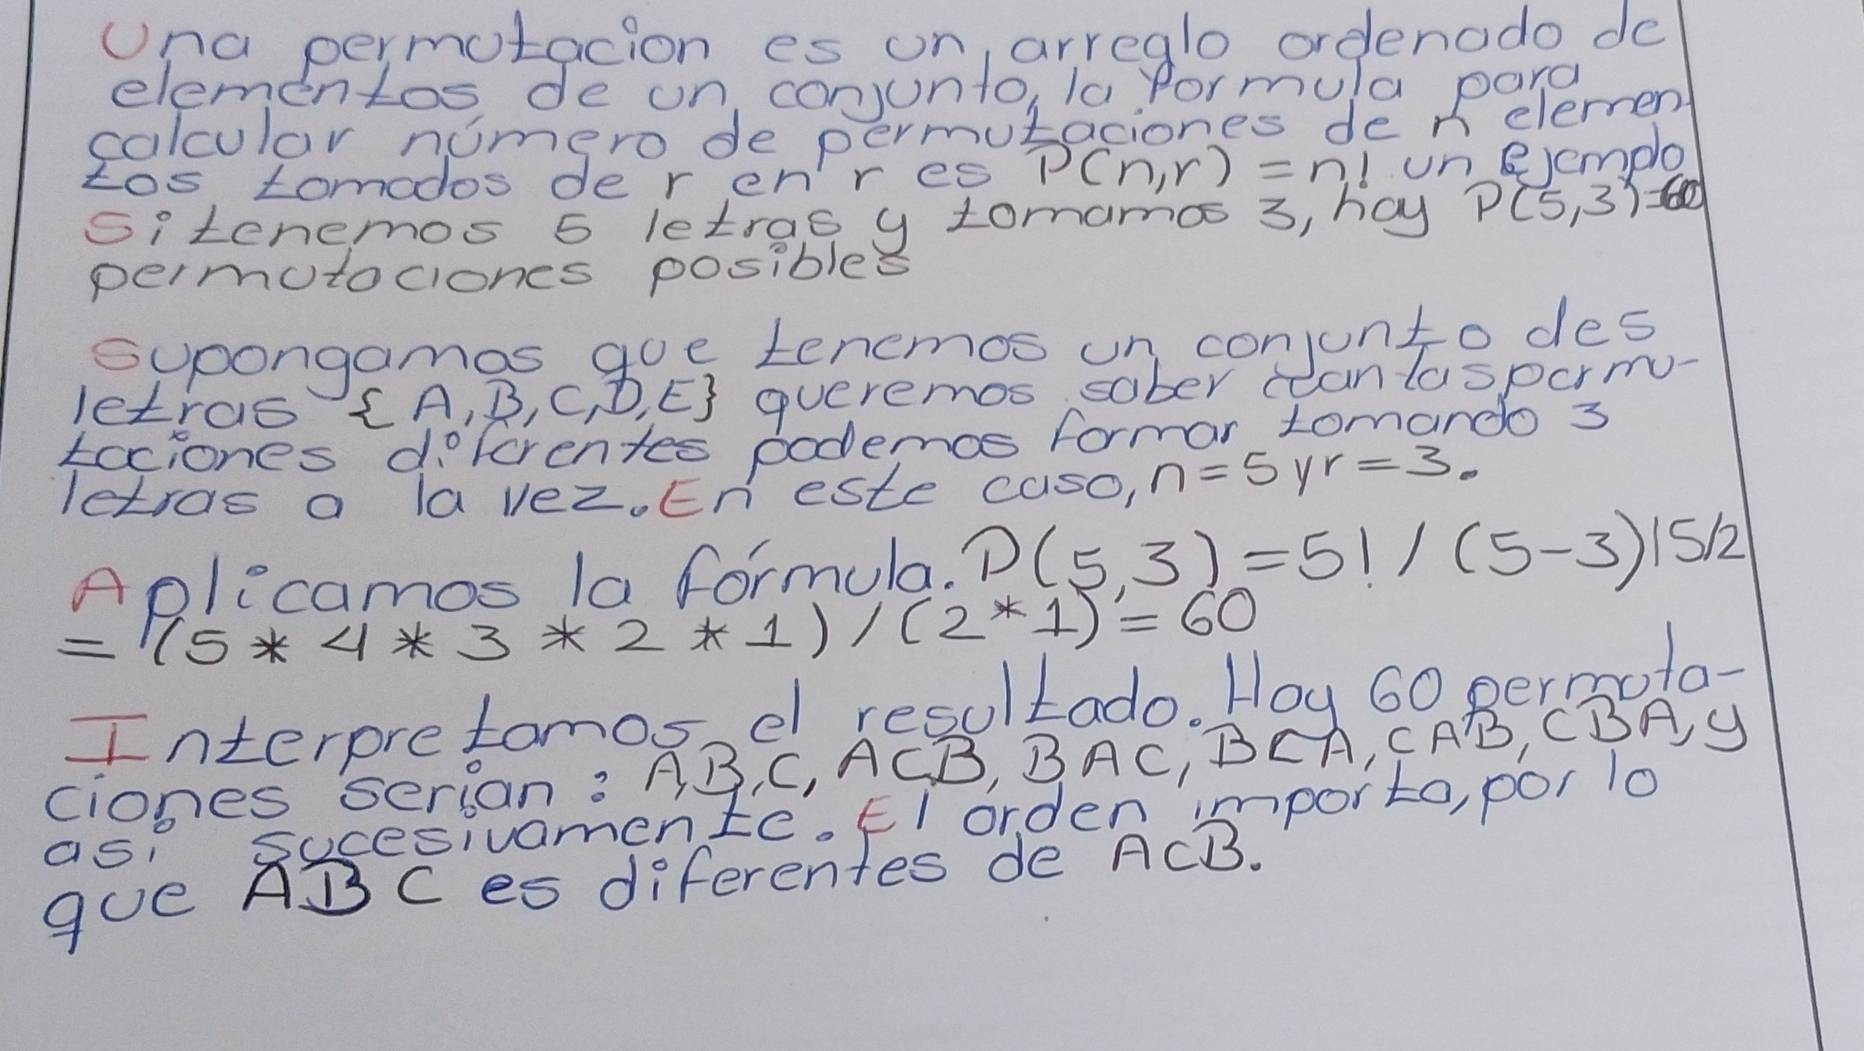 Una permutacion es un arreglo ordenado de
elementos de un conjunto, la formula para
calcular número de permutaciones de n elemen
tos tomados de r en r es P(n,r) = n! un Ejemplo
Si tenemos 5 letras y tomamos 3, hay P(5,3)=60
permutaciones posibles
Supongamos que tenemos un conjunto de 5
letras {A, B, C, D, E} queremos saber cuantas permu-
taciones diferentes podemos formar tomando 3
letras a la vez. En este caso, n=5 y r=3.
Aplicamos la fórmula. P(5,3) = 5! / (5-3)! 5/2
= (5*4*3*2*1)/(2*1) = 60
Interpretamos el resultado. Hay 60 permuta-
ciones serian: A,B,C, ACB, BAC, BCA, CAB, CBA, y
asi sucesivamente. El orden importa, por lo
que ABC es diferentes de ACB.